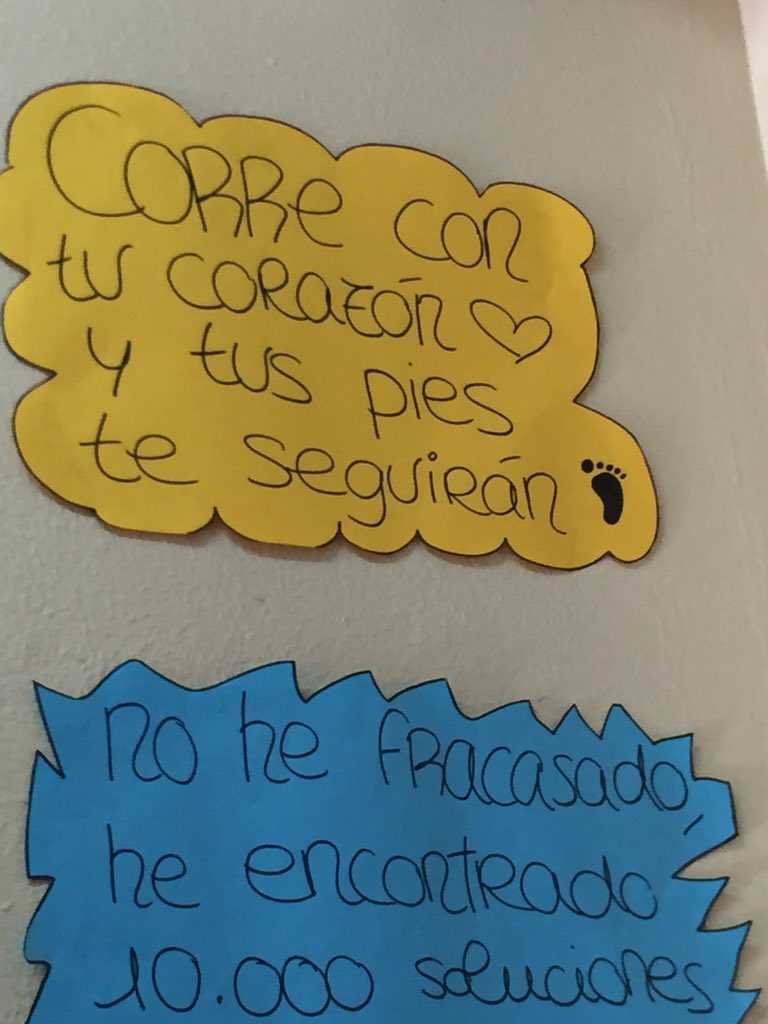 Corre con
tu corazón
y tus pies
te seguirán
no he fracasado,
he encontrado
10.000 soluciones